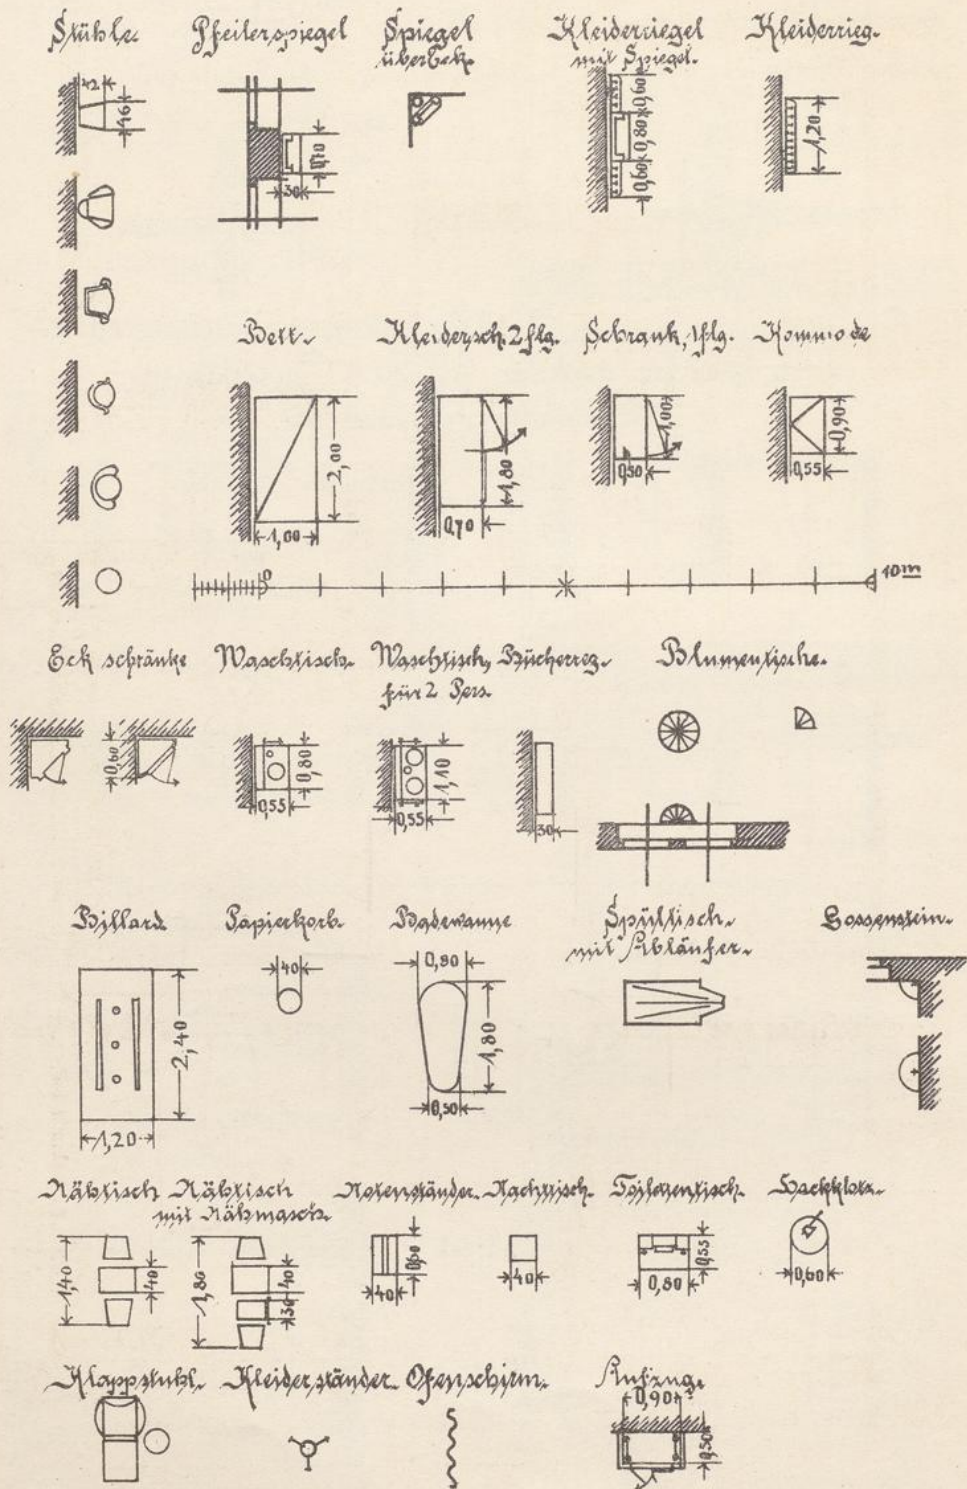 Stühle.
Pfeilerspiegel
Spiegel
über Eck.
Kleiderriegel
mit Spiegel.
Kleiderrieg.
42
46
0,70
30
0,60
0,80
0,60
1,20
Bett.
Kleidersch. 2flg.
Schrank, 1flg.
Kommode
2,00
1,00
1,80
0,70
1,00
0,50
0,90
0,55
0
10 m
Eckschränke
Waschtisch.
Waschtisch,
für 2 Pers.
Bücherreg.
Blumentische.
0,60
0,80
0,55
1,10
0,55
30
Billard.
Papierkorb.
Badewanne
Spültisch.
mit Abläufer.
Gossenstein.
40
0,80
2,40
1,80
1,20
0,50
Nähtisch
Nähtisch
mit Nähmasch.
Notenständer.
Nachttisch.
Toilettentisch.
Hackklotz.
1,40
40
1,80
40
30
0,60
40
40
0,55
0,80
0,60
Klappstuhl.
Kleiderständer.
Ofenschirm.
Aufzug.
0,90
0,50